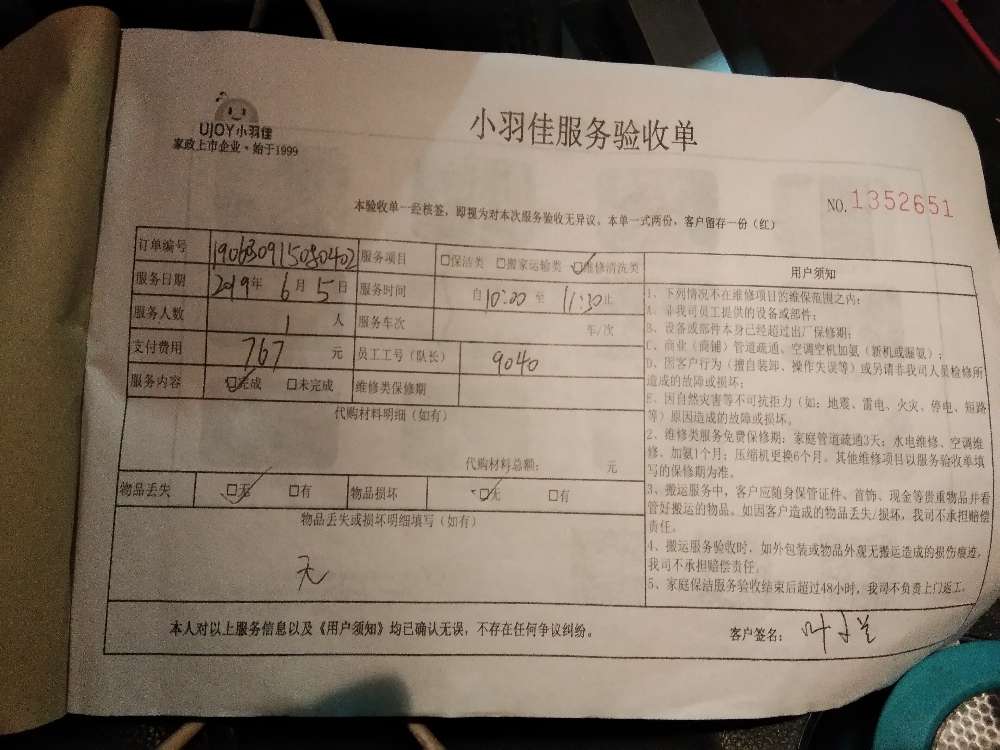 UJOY小羽佳
家政上市企业·始于1999
小羽佳服务验收单
NO.1352651
本验收单一经核签，即视为对本次服务验收无异议，本单一式两份，客户留存一份（红）
订单编号 服务项目 □保洁类 □搬家运输类 □维修清洗类
服务日期 2019年 6月 5日 服务时间 自10:00至 11:30止
服务人数 1 人 服务车次 车/次
支付费用 767 元 员工工号（队长） 9040
服务内容 □完成 □未完成 维修类保修期
代购材料明细（如有）
代购材料总额： 元
物品丢失 □无 □有 物品损坏 □无 □有
物品丢失或损坏明细填写（如有）
无
用户须知
1、下列情况不在维修项目的维保范围之内：
A、非我司员工提供的设备或部件；
B、设备或部件本身已经超过出厂保修期；
C、商业（商铺）管道疏通、空调空机加氨（新机或漏氨）；
D、因客户行为（擅自装卸、操作失误等）或另请非我司人员检修所
造成的故障或损坏；
E、因自然灾害等不可抗拒力（如：地震、雷电、火灾、停电、短路
等）原因造成的故障或损坏。
2、维修类服务免费保修期：家庭管道疏通3天；水电维修、空调维
修、加氨1个月；压缩机更换6个月。其他维修项目以服务验收单填
写的保修期为准。
3、搬运服务中，客户应随身保管证件、首饰、现金等贵重物品并看
管好搬运的物品。如因客户造成的物品丢失/损坏，我司不承担赔偿
责任。
4、搬运服务验收时，如外包装或物品外观无搬运造成的损伤痕迹，
我司不承担赔偿责任。
5、家庭保洁服务验收结束后超过48小时，我司不负责上门返工。
本人对以上服务信息以及《用户须知》均已确认无误，不存在任何争议纠纷。
客户签名：